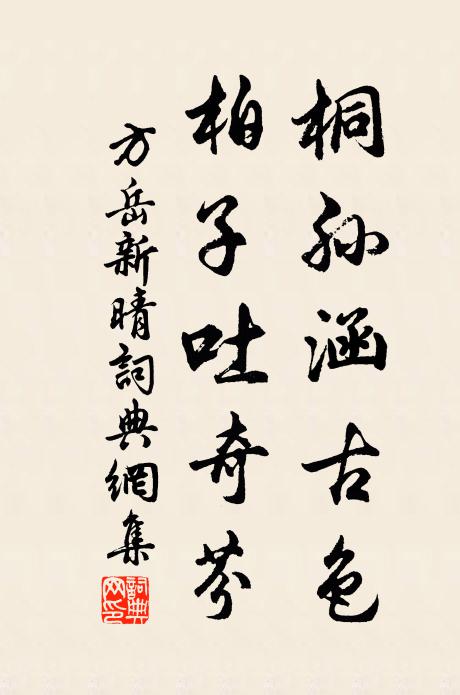 桐孙涵古色
柏子吐奇芬
方岳新晴詞典網集
詞典网印